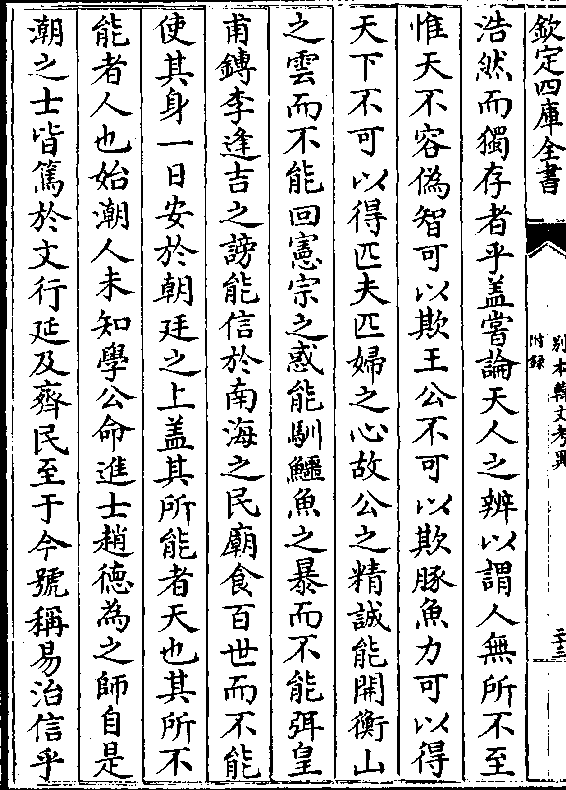 欽定四庫全書
別本韓文考異
附録
浩然而獨存者乎盖嘗論天人之辨以謂人無所不至
惟天不容偽智可以欺王公不可以欺豚魚力可以得
天下不可以得匹夫匹婦之心故公之精誠能開衡山
之雲而不能回憲宗之惑能馴鱷魚之暴而不能弭皇
甫鏄李逢吉之謗能信於南海之民廟食百世而不能
使其身一日安於朝廷之上盖其所能者天也其所不
能者人也始潮人未知學公命進士趙德為之師自是
潮之士皆篤於文行延及齊民至于今號稱易治信乎